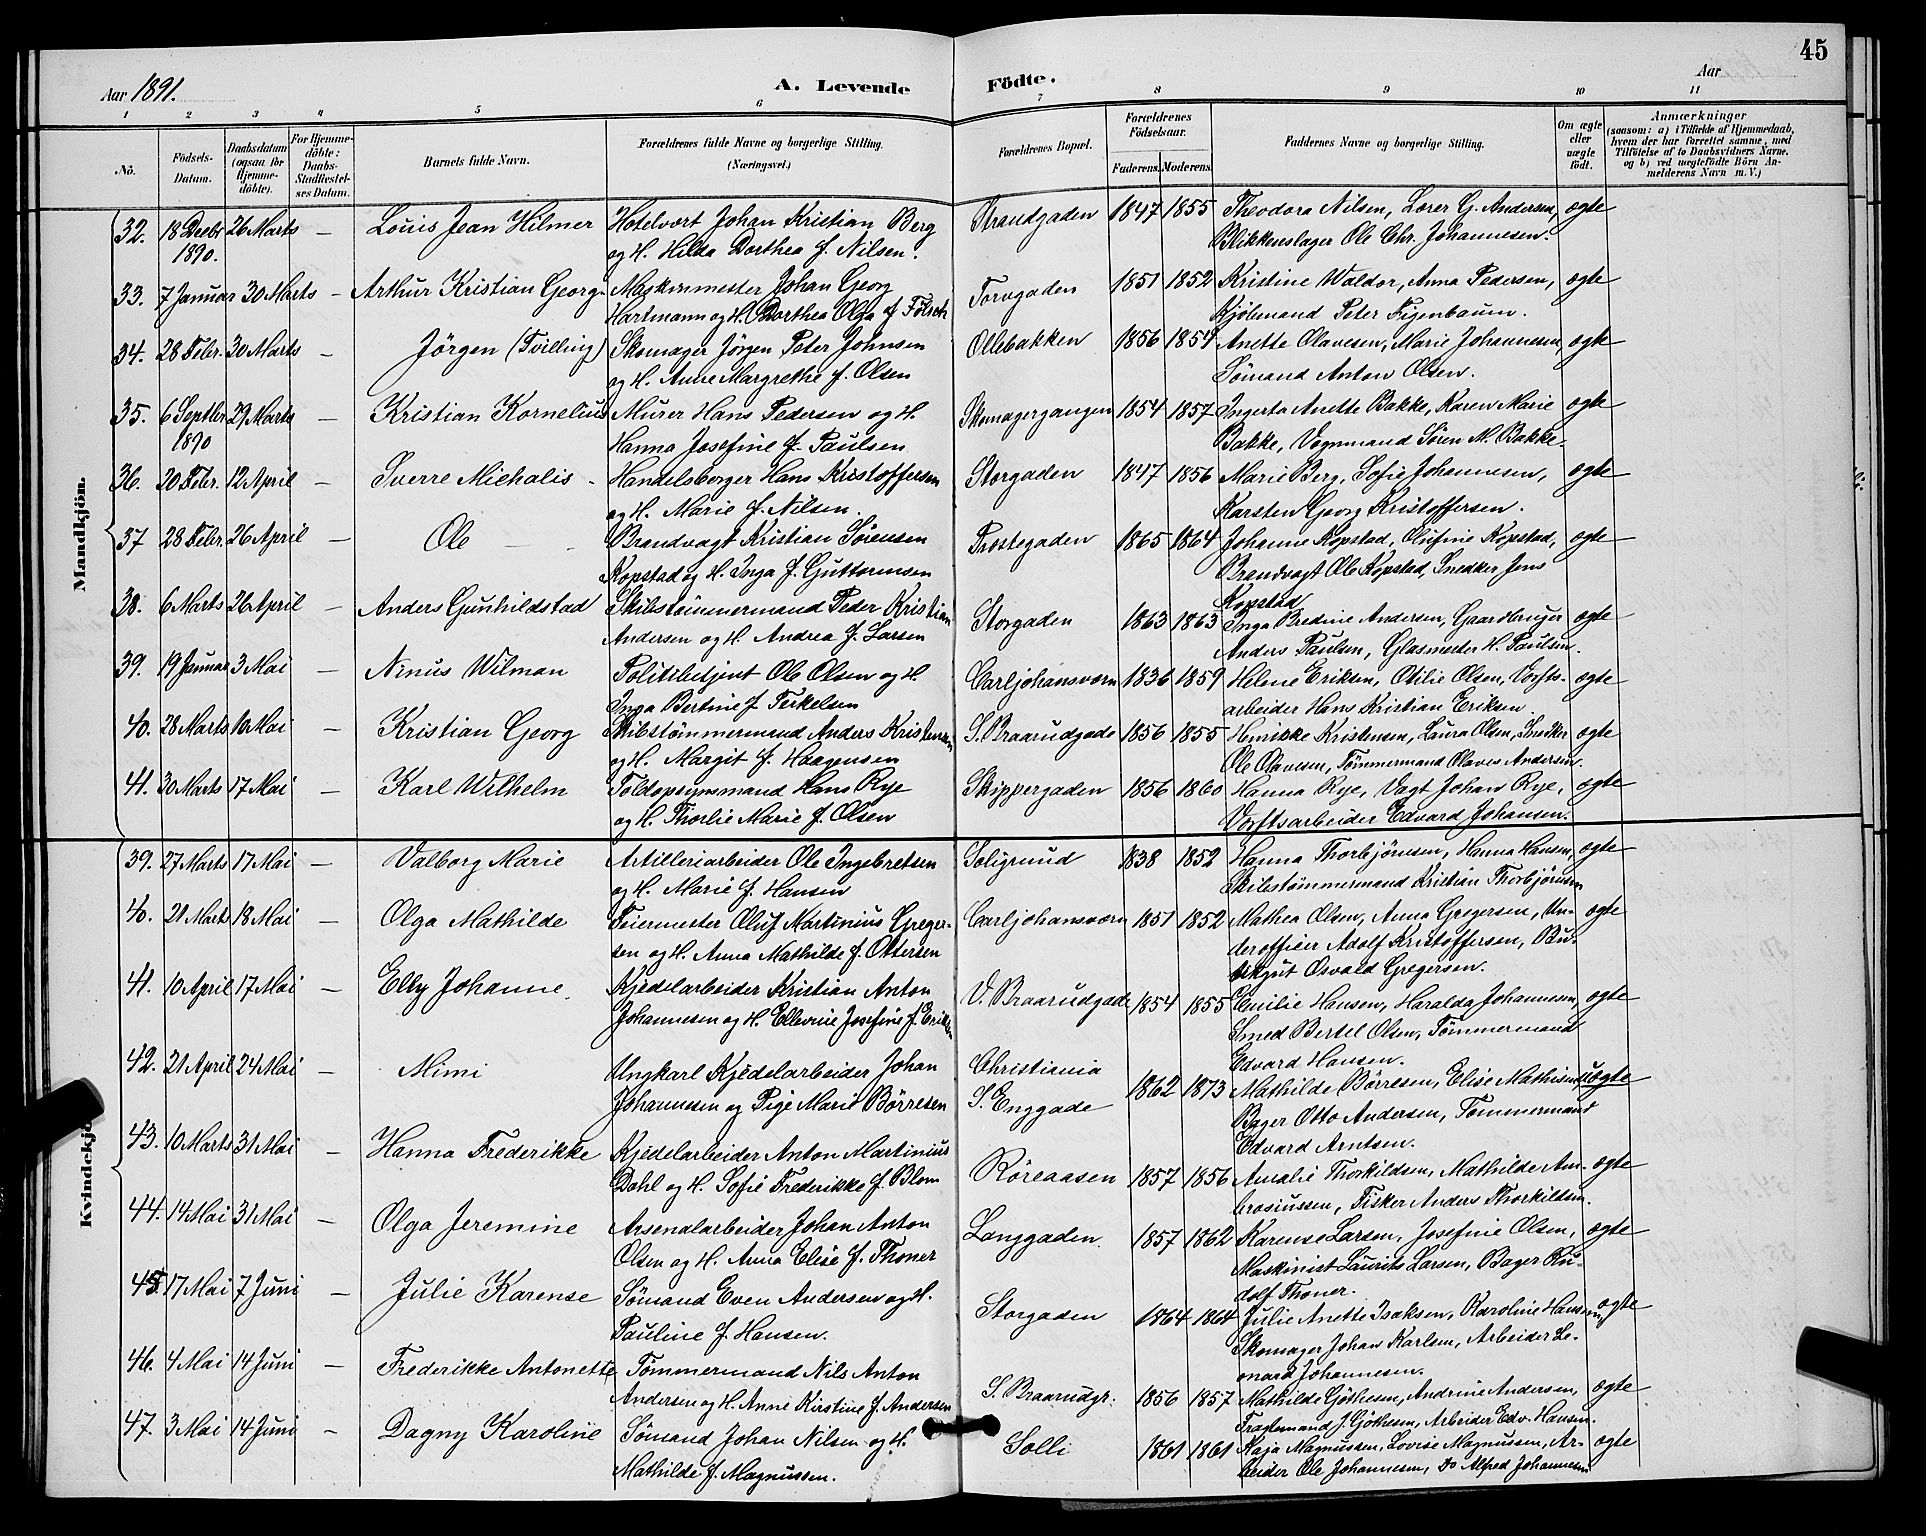 45
Aar 1891. A. Levende Födte. Aar
1 2 3 4 5 6 7 8 9 10 11
No. Födsels-Datum. Daabsdatum (ogsaa for Hjemmedöbte). For Hjemmedöbte: Daabs-Stadfestelses Datum. Barnets fulde Navn. Forældrenes fulde Navne og borgerlige Stilling. (Næringsvei.) Forældrenes Bopæl. Forældrenes Födselsaar. Faderens. Moderens. Faddernes Navne og borgerlige Stilling. Om ægte eller uægte födt. Anmærkninger (saasom: a) i Tilfælde af Hjemmedaab, hvem der har forrettet samme, med Tilföielse af to Daabsvidners Navne, og b) ved uægtefödte Börn Anmelderens Navn m. V.)
Mandkjön.
32. 18 Decbr 26 Marts – Louis Jean Hilmer Hotelvært Johan Kristian Berg Strandgaden 1847 1855 Theodora Nilsen, Lærer G. Andersen, ægte
1890. og H. Hilda Dorthea f. Nilsen. Blikkenslager Ole Chr. Johannesen.
33. 7 Januar 30 Marts – Arthur Kristian Georg Maskinmester Johan Georg Torvgaden 1851 1852 Kristine Waldor, Anna Pedersen, ægte
Hartmann og H. Dorthea Olga f. Fölsch Kjöbmand Peter Figenbaum.
34. 28 Febr. 30 Marts – Jörgen (Tvilling) Skomager Jörgen Peter Johnsen Ollebakken 1856 1854 Anette Olavesen, Marie Johannesen, ægte
og H. Anne Margrethe f. Olsen Sömand Anton Olsen.
35. 6 Septbr 29 Marts – Kristian Kornelius Murer Hans Pedersen og H. Skomagergangen 1854 1857 Ingerta Anette Bakke, Karen Marie ægte
1890 Hanna Josefine f. Paulsen Bakke, Vognmand Sören M. Bakke.
36. 20 Febr. 12 April – Sverre Michalis Handelsborger Hans Kristoffersen Storgaden 1847 1856 Marie Berg, Sofie Johannesen, ægte
og H. Marie f. Nilsen. Karsten Georg Kristoffersen.
37 28 Febr. 26 April – Ole Brandvagt Kristian Sörensen Prestegaden 1865 1864 Johanne Kopstad, Olufine Kopstad, ægte
Kopstad og H. Inga f. Guttormsen Brandvagt Ole Kopstad, Snedker Jens
Kopstad
38. 6 Marts 26 April – Anders Gunhildstad Skibstömmermand Peder Kristian Storgaden 1863 1863 Inga Bredine Andersen, Gaardbruger ægte
Andersen og H. Andrea f. Larsen Anders Paulsen, Glasmester H. Paulsen.
39. 19 Januar 3 Mai – Ninus Wilman Politibetjent Ole Olsen og H. Carljohansværn 1836 1859 Helene Eriksen, Otilie Olsen, Værfts- ægte
Inga Bertine f. Terkelsen arbeider Hans Kristian Eriksen.
40. 28 Marts 10 Mai – Kristian Georg Skibstömmermand Anders Kristensen S. Braarudgade 1856 1855 Henrikke Kristensen, Laura Olsen, Snedker ægte
og H. Margit f. Haagensen Ole Olavesen, Tömmermand Olaves Andersen.
41. 30 Marts 17 Mai – Karl Wilhelm Toldopsynsmand Hans Rye Skippergaden 1856 1860 Hanna Rye, Vagt Johan Rye, ægte
og H. Thorlie Marie f. Olsen Værftsarbeider Edvard Johansen.
Kvindekjön
39. 27 Marts 17 Mai – Valborg Marie Artilleriarbeider Ole Ingebretsen Soligrund 1838 1852 Hanna Thorbjörnsen, Hanna Hansen, ægte
og H. Marie f. Hansen Skibstömmermand Kristian Thorbjörnsen
40. 21 Marts 18 Mai – Olga Mathilde Feiermester Oluf Martinius Greger- Carljohansværn 1851 1852 Mathea Olsen, Anna Gregersen, Un- ægte
sen og H. Anna Mathilde f. Ottersen derofficer Adolf Kristoffersen, Bu-
tikgut Osvald Gregersen.
41. 10 April 17 Mai – Elly Johanne Kjedelarbeider Kristian Anton V. Braarudgade 1854 1855 Emilie Hansen, Haralda Johannesen, ægte
Johannesen og H. Ellevine Josefine f. Eriksen Smed Bertel Olsen, Tömmermand
Edvard Hansen.
42. 21 April 24 Mai – Mimi Ungkarl Kjedelarbeider Johan Christiania 1862 1873 Mathilde Börresen, Elise Mathisen, uægte
Johannesen og Pige Marie Börresen S. Enggade Bager Otto Andersen, Tömmermand
Edvard Arntsen.
43. 10 Marts 31 Mai – Hanna Frederikke Kjedelarbeider Anton Martinius Röreaasen 1857 1856 Amalie Thorkildsen, Mathilde Am- ægte
Dahl og H. Sofie Frederikke f. Blom brosiussen, Fisker Anders Thorkilsen.
44. 14 Mai 31 Mai – Olga Jeremine Arsenalarbeider Johan Anton Langgaden 1857 1862 Karense Larsen, Josefine Olsen, ægte
Olsen og H. Anna Elise f. Thoner Maskinist Laurits Larsen, Bager Ru-
dolf Thoner.
45. 17 Mai 7 Juni – Julie Karense Sömand Even Andersen og H. Storgaden 1864 1864 Julie Anette Isaksen, Karoline Hansen, ægte
Pauline f. Hansen. Skomager Johan Karlsen, Arbeider Le-
onard Johannesen.
46. 4 Mai 14 Juni – Frederikke Antonette Tömmermand Nils Anton S. Braarudgr. 1856 1857 Mathilde Göthesen, Andrine Andersen, ægte
Andersen og H. Anne Kirstine f. Andersen Fragtemand J. Göthesen, Arbeider Edv. Hansen.
47. 3 Mai 14 Juni – Dagny Karoline Sömand Johan Nilsen og H. Solli 1861 1861 Kaja Magnussen, Lovise Magnussen, Ar- ægte
Mathilde f. Magnussen. beider Ole Johannesen, Do Alfred Johannesen